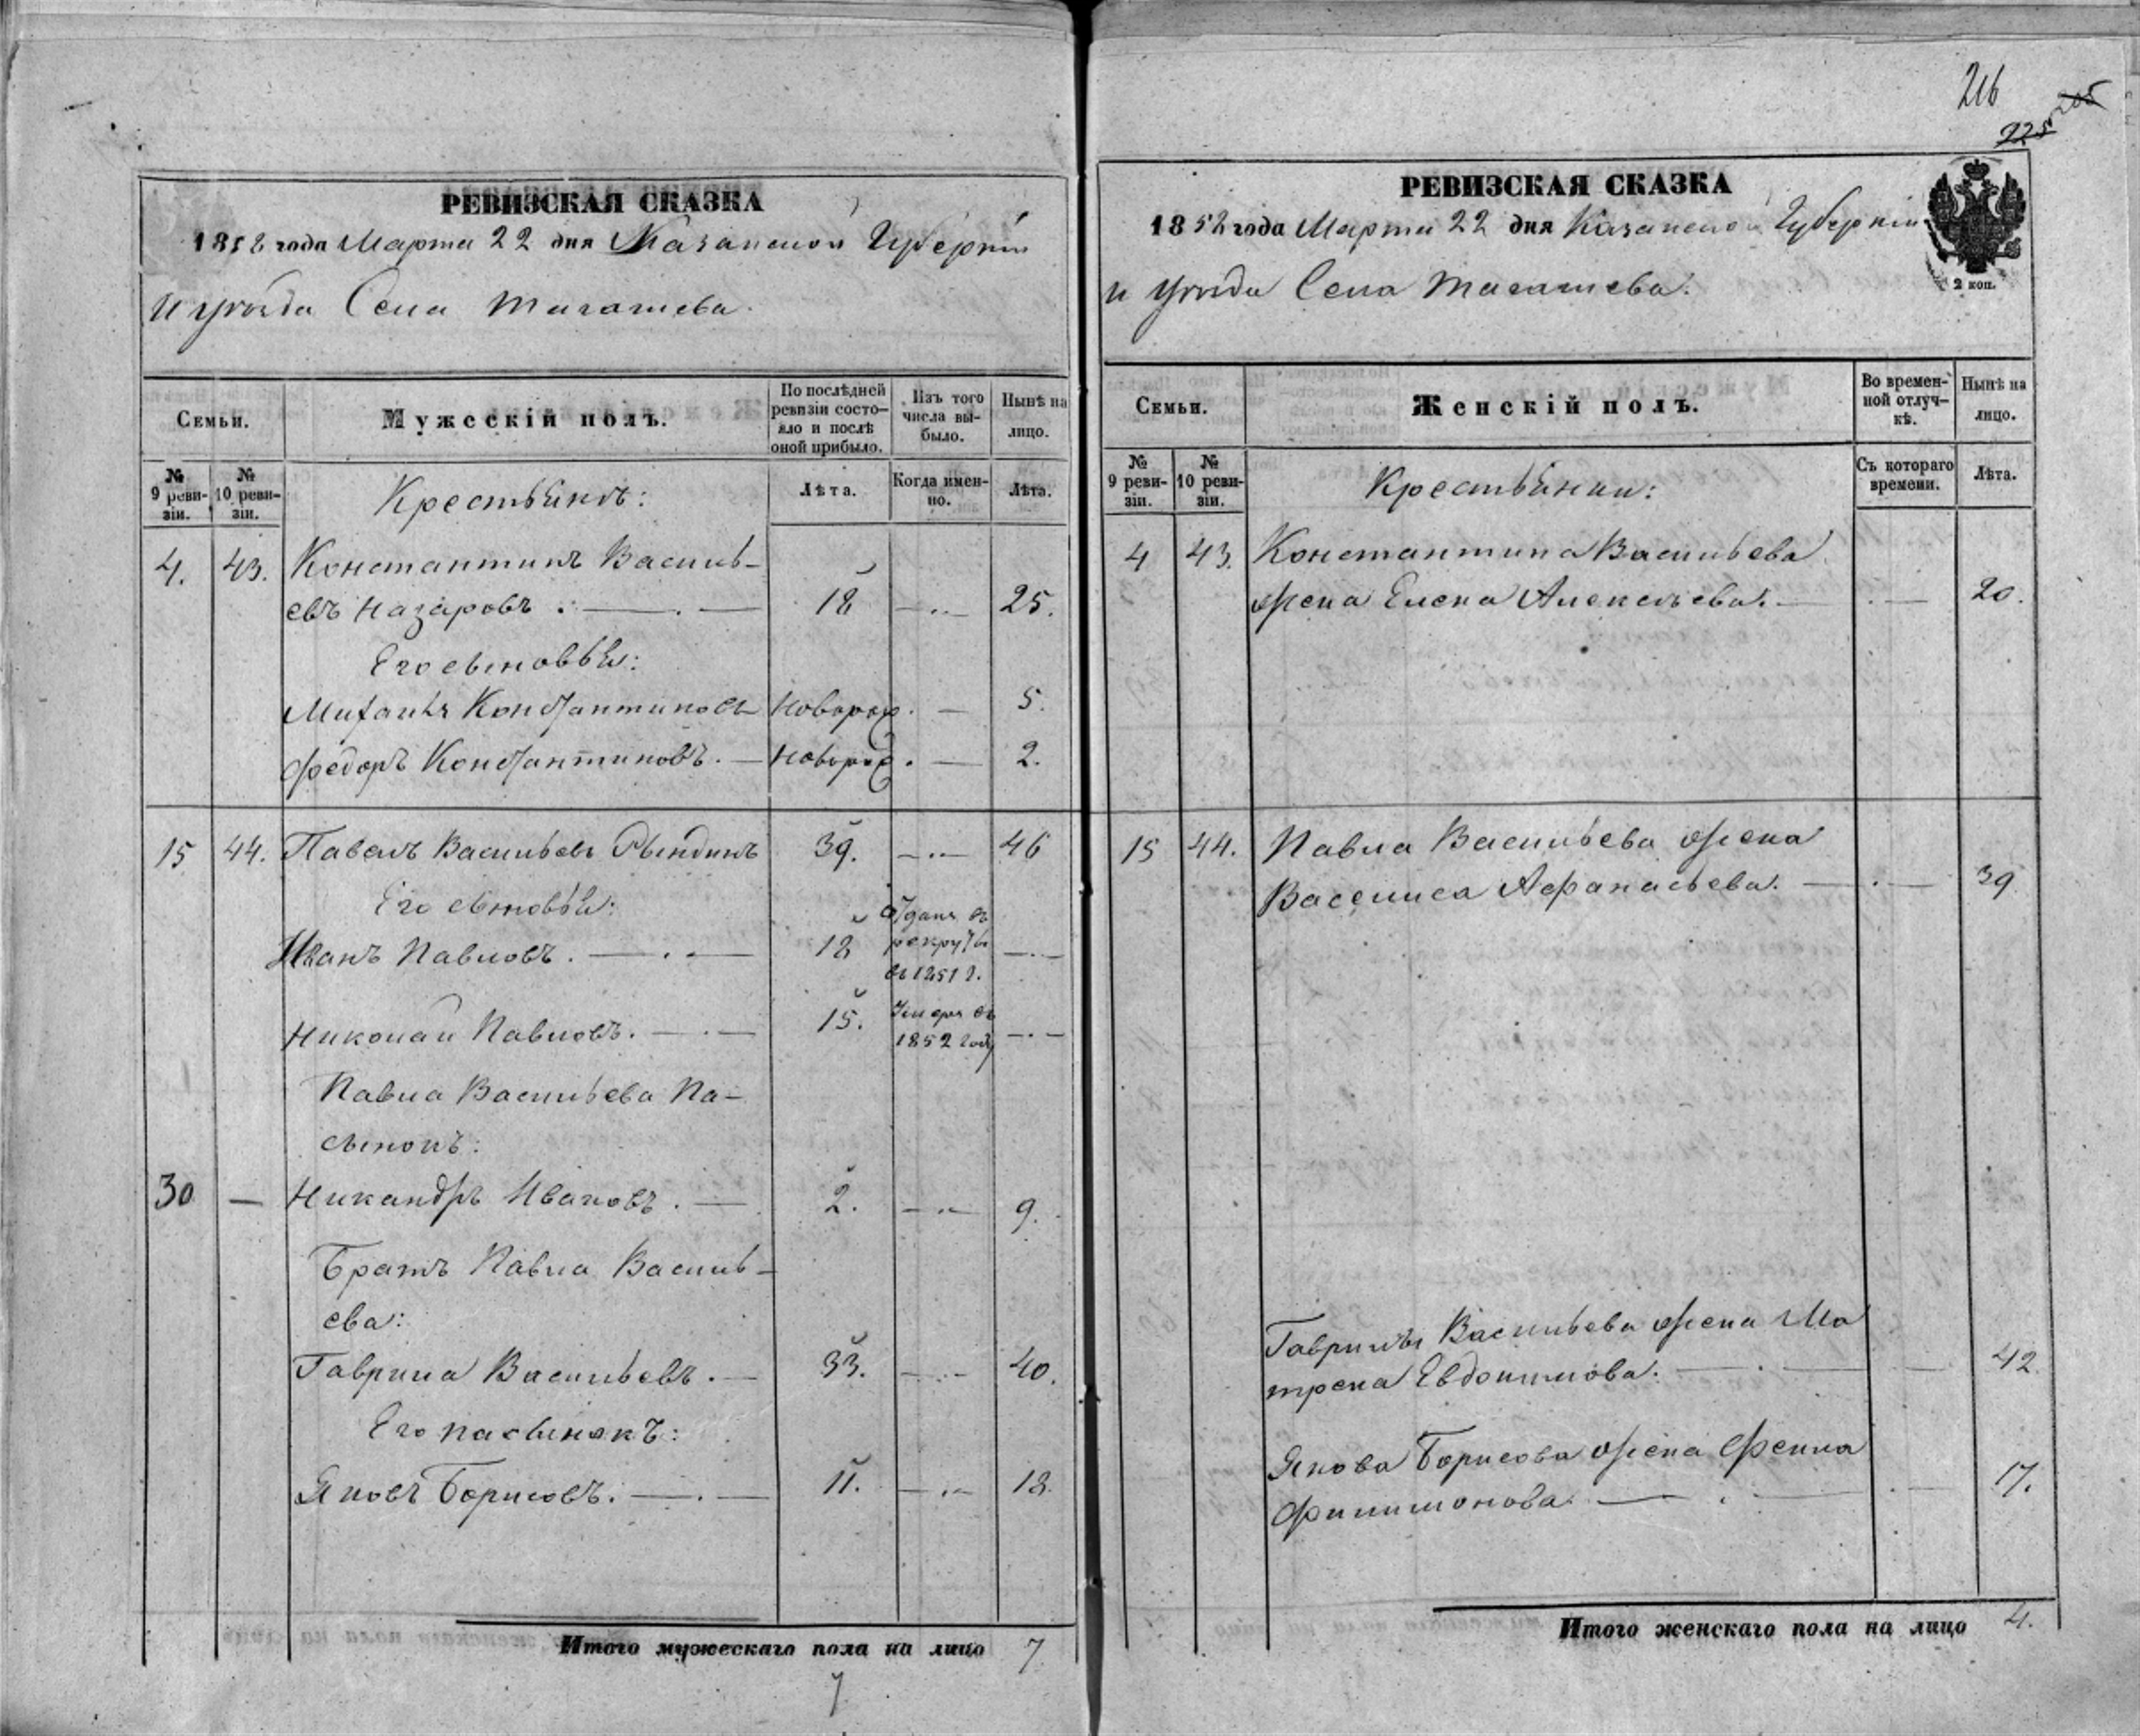 РЕВИЗСКАЯ СКАЗКА
1858 года Марта 22 дня Казанской Губерніи
и уѣзда Села Тагашева.
Семьи.
Мужескій полъ.
По послѣдней ревизіи состояло и послѣ оной прибыло.
Изъ того числа выбыло.
Нынѣ на лицо.
№ 9 ревизіи.
№ 10 ревизіи.
Крестьянъ:
Лѣта.
Когда именно.
Лѣта.
4. 43. Константинъ Василь-
евъ Назаровъ. 18 25.
Его сыновья:
Михаилъ Константиновъ Новорож. 5.
Федоръ Константиновъ. Новорож. 2.
15 44. Павелъ Васильевъ Рындинъ 39. 46
Его сыновья:
Иванъ Павловъ. 18 Отданъ въ рекруты въ 1851 г.
Николай Павловъ. 15. Умеръ въ 1852 году
Павла Васильева Па-
сынокъ:
30 — Никандръ Ивановъ. 2. 9.
Братъ Павла Василь-
ева:
Гаврила Васильевъ. 33. 40.
Его пасынокъ:
Яковъ Борисовъ. 11. 18.
Итого мужескаго пола на лицо 7
7
216
225
РЕВИЗСКАЯ СКАЗКА
1858 года Марта 22 дня Казанской Губерніи
и уѣзда Села Тагашева.
2 коп.
Семьи.
Женскій полъ.
Во временной отлучкѣ.
Нынѣ на лицо.
№ 9 ревизіи.
№ 10 ревизіи.
Крестьянки:
Съ котораго времени.
Лѣта.
4 43. Константина Васильева
жена Елена Алексѣева. 20.
15 44. Павла Васильева жена
Василиса Афанасьева. 39
Гаврилы Васильева жена Ма
трена Евдокимова. 42
Якова Борисова жена Фекла
Филимонова. 17.
Итого женскаго пола на лицо 4.